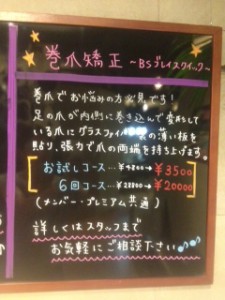 巻爪矯正 ~BSブレイスクイック~
巻爪でお悩みの方必見です!
足の爪が内側に巻き込んで変形して
いる爪にグラスファイ の薄い板を
貼り、張力で爪の両端を持ち上げます
お試しコース…¥4200→¥3500
6回コース…¥28800→¥20000
(メンバー・プレミアム共通)
詳しくはスタッフまで
お気軽にご相談下さい♪♪